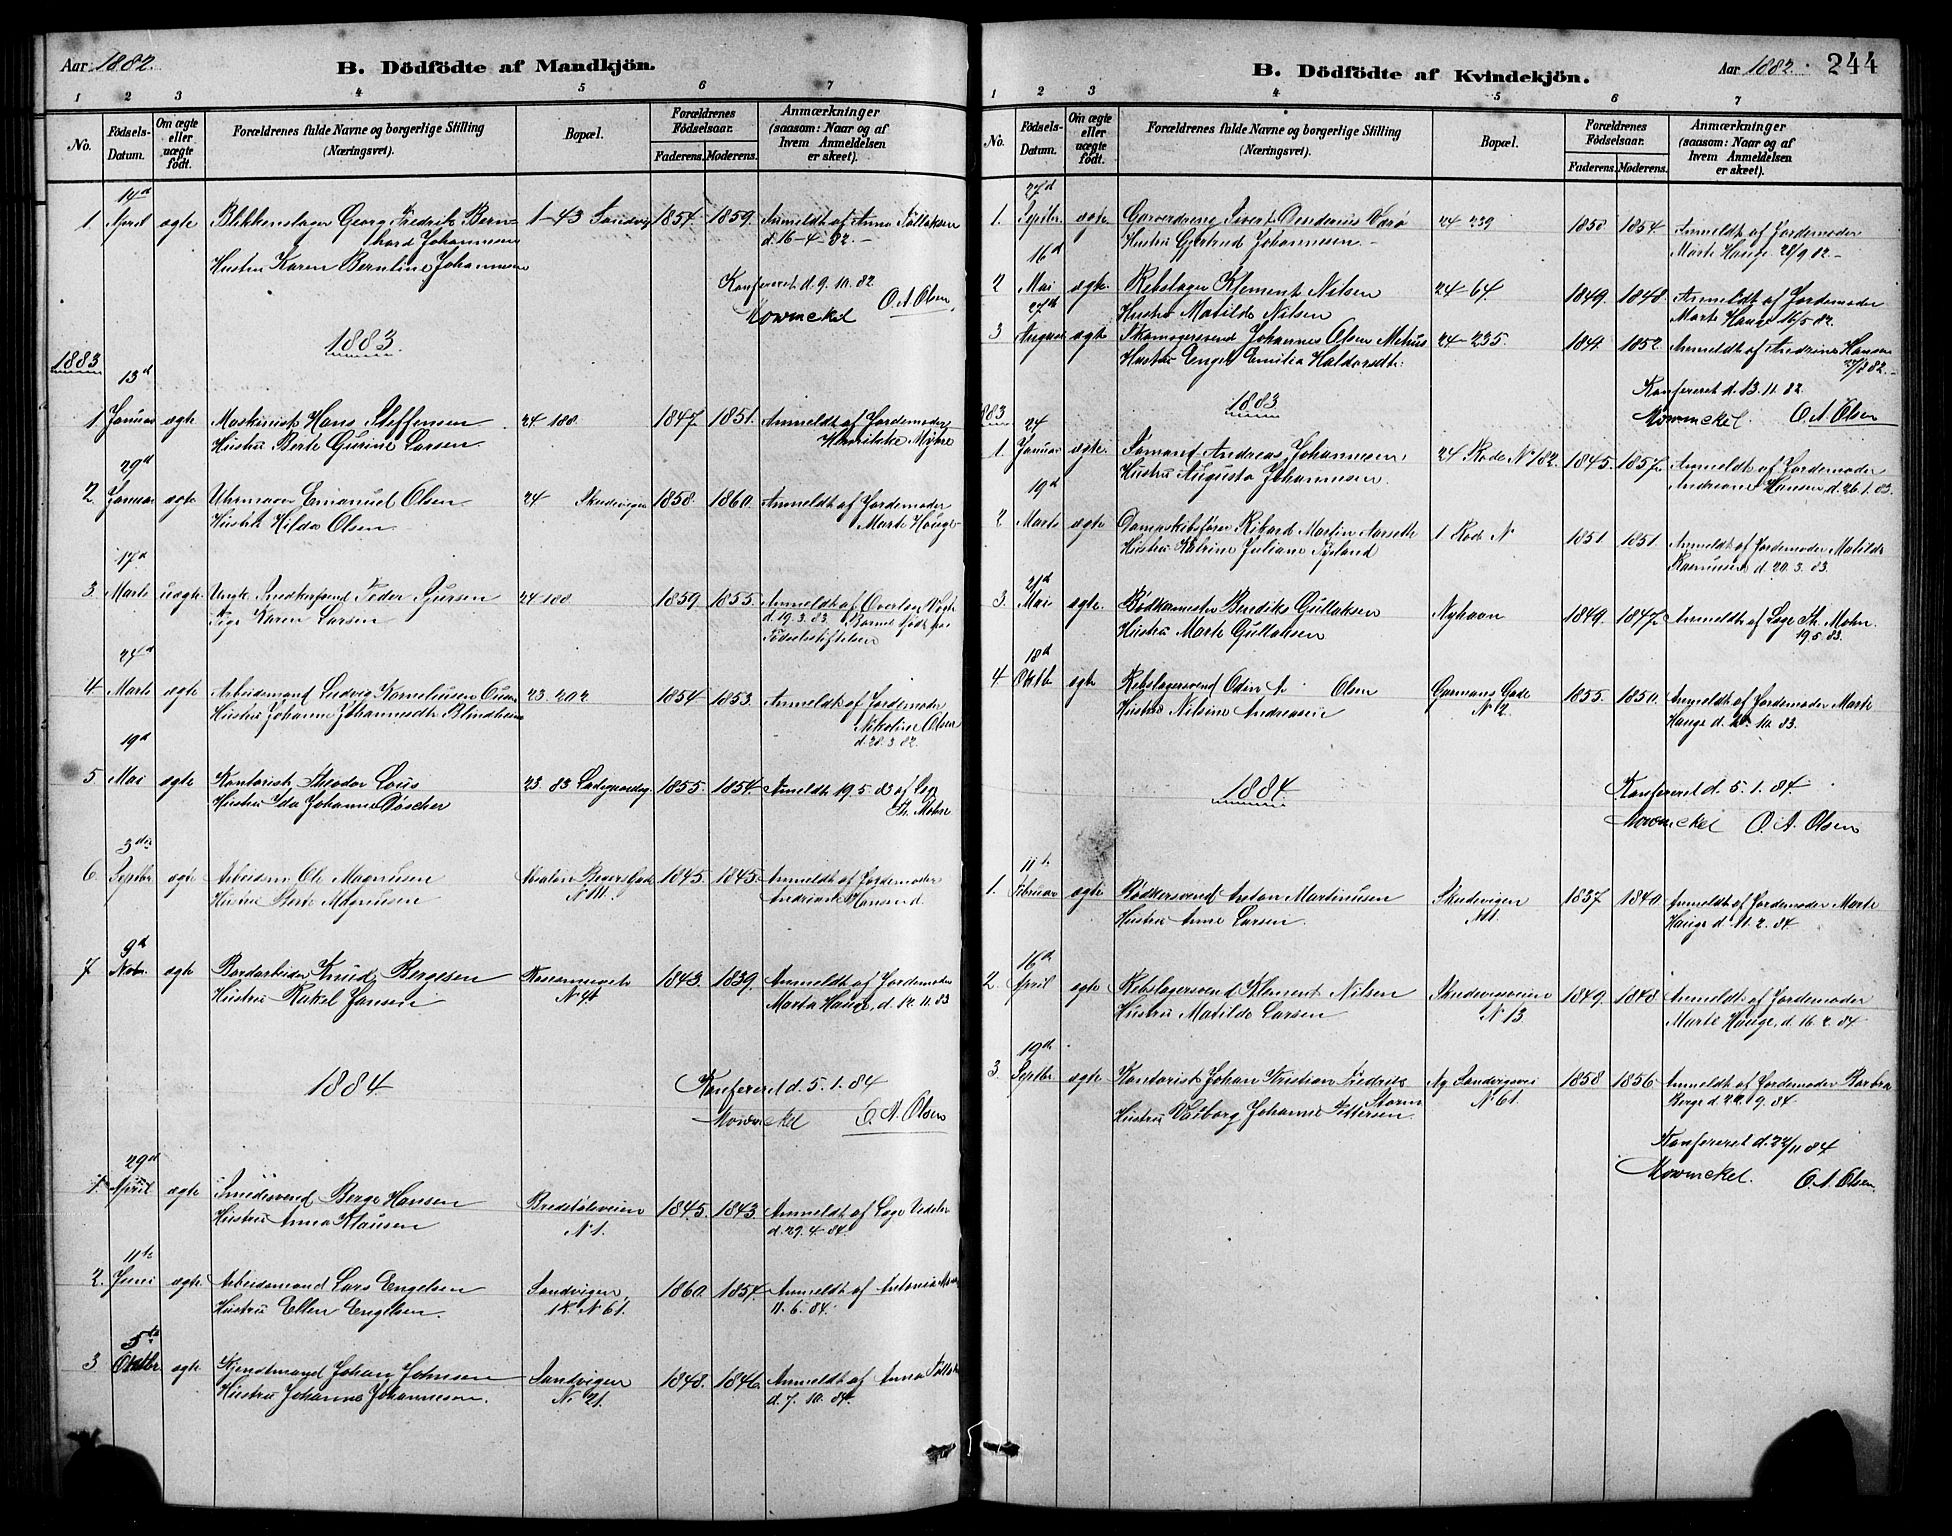 Aar 1882.
B. Dödfödte af Mandkjön.
1 2 3 4 5 6 7
No.
Födsels-Datum.
Om ægte eller uægte födt.
Forældrenes fulde Navne og borgerlige Stilling (Næringsvei).
Bopæl.
Forældrenes Födselsaar.
Faderens. Moderens.
Anmærkninger (saasom: Naar og af hvem Anmeldelsen er skeet).
14d
1. April ægte Blikkenslager Georg Fredrik Bern= 1-43 Sandvig 1854. 1859. Anmeldt af Anna Tollaksen
hard Johannesen d. 16-4-82.
Hustru Karen Berntine Johannesen
Konfereret d. 9. 10. 82
Mowinckel O. A. Olsen.
1883.
1883
13d
1. Januar ægte Maskinist Hans Steffensen 24 188 1847. 1851. Anmeldt af Jordemoder
Hustru Berte Gurine Larsen. Henrikke Myhre
29d
2. Januar ægte Uhrmager Emanuel Olsen 24 Skudevigen 1858. 1860. Anmeldt af Jordemoder
Hustru Hilda Olsen. Marte Hauge
17d
3. Marts uægte Ungk. Snedkersvend Peder Sjursen 24 188 1859 1855. Anmeldt af Overlæge Vogt
Pige Karen Larsen d. 19.3.83 Barnet født paa
Fødselsstiftelsen
24d
4. Marts ægte Arbeidsmand Ludvig Korneliusen 23 202 1854 1853. Anmeldt af Jordemoder
Hustru Johanne Johannesdtr Blindheim Nikoline Olsen
d. 28. 3. 82.
19d
5 Mai ægte Kontorist Theodor Lous 23 83 Ladegaardsg. 1855. 1854. Anmeldt 19.5.83 af Læge
Hustru Ida Johanne Döscher Th. Mohn
3die
6. Septbr ægte Arbeidsm Ole Magnusen 1845. 1845. Anmeldt af Jordemoder
Hustru Berte Magnusen N 11. Andreane Hansen d.
9d
7. Novbr. ægte Bordarbeider Knud Bergesen 1843. 1839. Anmeldt af Jordemoder
Hustru Rakel Jansen Marta Hauge, d. 12. 11. 83
1884
Konfereret d. 5. 1. 84
Mowinckel O. A. Olsen
29d
1. April ægte Smedesvend Berge Hansen Bredstølsveien 1845. 1843. Anmeldt af Læge Vedeler
Hustru Anna Klausen N 1. d. 29. 4. 84.
11te
2. Juni ægte Arbeidsmand Lars Engelsen Sandvigen, 1860. 1854. Anmeldt af Antonia
Hustru Ellen Engelsen. 1K. N 61. 11. 6. 84.
5te
3 Oktbr ægte Kjendtmand Johan Johnsen Sandvigen 1848. 1846. Anmeldt af Anna
Hustru Johanne Johannesen. N. 21. d. 7. 10. 84.
B. Dödfödte af Kvindekjön.
Aar 1882. 244
1 2 3 4 5 6 7
No.
Födsels-Datum.
Om ægte eller uægte födt.
Forældrenes fulde Navne og borgerlige Stilling (Næringsvei).
Bopæl.
Forældrenes Födselsaar.
Faderens. Moderens.
Anmærkninger (saasom: Naar og af hvem Anmeldelsen er skeet).
27d
1. Septbr. ægte Sivert 24-239 1850. 1854. Anmeldt af Jordemoder
Hustru Gjertrud Johannesen. Marte Hauge 28/9 82.
16d
2 Mai ægte. Rebslager Klement Nilsen 24-64. 1849. 1848. Anmeldt af Jordemoder
Hustru Matilde Nilsen Marte Hauge 16/5 82.
27th
3 August ægte Skomagersvend Johannes Olsen Mehus 24-235. 1844. 1852. Anmeldt af Andrine Hansen
Hustru Engel Emilia Haldorsdtr. 27/8 82.
Konfereret d. 13. 11. 82.
Mowinckel. O. A. Olsen
1883
1883
24
1 Januar ægte. Sømand Andreas Johannesen, 24 Rode No 182. 1845. 1857. Anmeldt af Jordemoder
Hustru Augusta Johannesen. Andreane Hansen d. 26. 1. 83.
19d
2 Marts ægte Dampskibsfører Rikard Martin Aarseth 1 Rode N 1851. 1851. Anmeldt af Jordemoder Matilde
Hustru Katrine Juliane Rasmussen d. 20. 3. 83.
21d
3. Mai ægte. Bødkermester Bendiks Gullaksen Nyhavn 1849. 1847. Anmeldt af Læge Th. Mohn.
Hustru Marte Gullaksen 19. 5. 83.
18d
4 Oktb ægte Rebslagersvend Odin A Olsen Gørmans Gade 1855. 1850. Anmeldt af Jordemoder Marte
Hustru Nilsine Andreasen N 2. Hauge d. 10. 83.
1884
Konfereret d. 5. 1. 84.
Mowinckel O. A. Olsen
11te
1. Februar ægte Bødkersvend Anton Martinusen Skudevigen 1837 1840. Anmeldt af Jordemoder Marte
Hustru Anne Larsen. N 1. Hauge d. 11. 2. 84
16d
2. April ægte Rebslagersvend Klement Nilsen Skudevigsveien 1849. 1848. Anmeldt af Jordemoder
Hustru Matilde Larsen N 13. Marte Hauge, d. 16. 2. 84
19de
3. Septbr ægte Kontorist Johan Kristian Fredrik Ny Sandvigsvei 1858 1856 Anmeldt af Jordemoder Barbra
Storm N 61. Berge d. 22. 9. 84.
Hustru Valborg Johanne Pettersen
Konfereret d. 22/11 84
Mowinckel. O. A. Olsen.